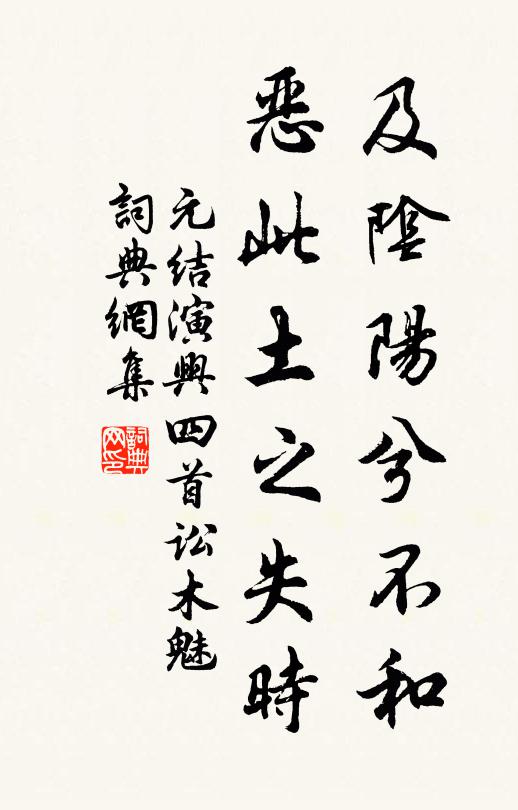 及陰陽兮不和
惡此土之失時
元结演興四首讼木魅
詞典網集
詞典
网印